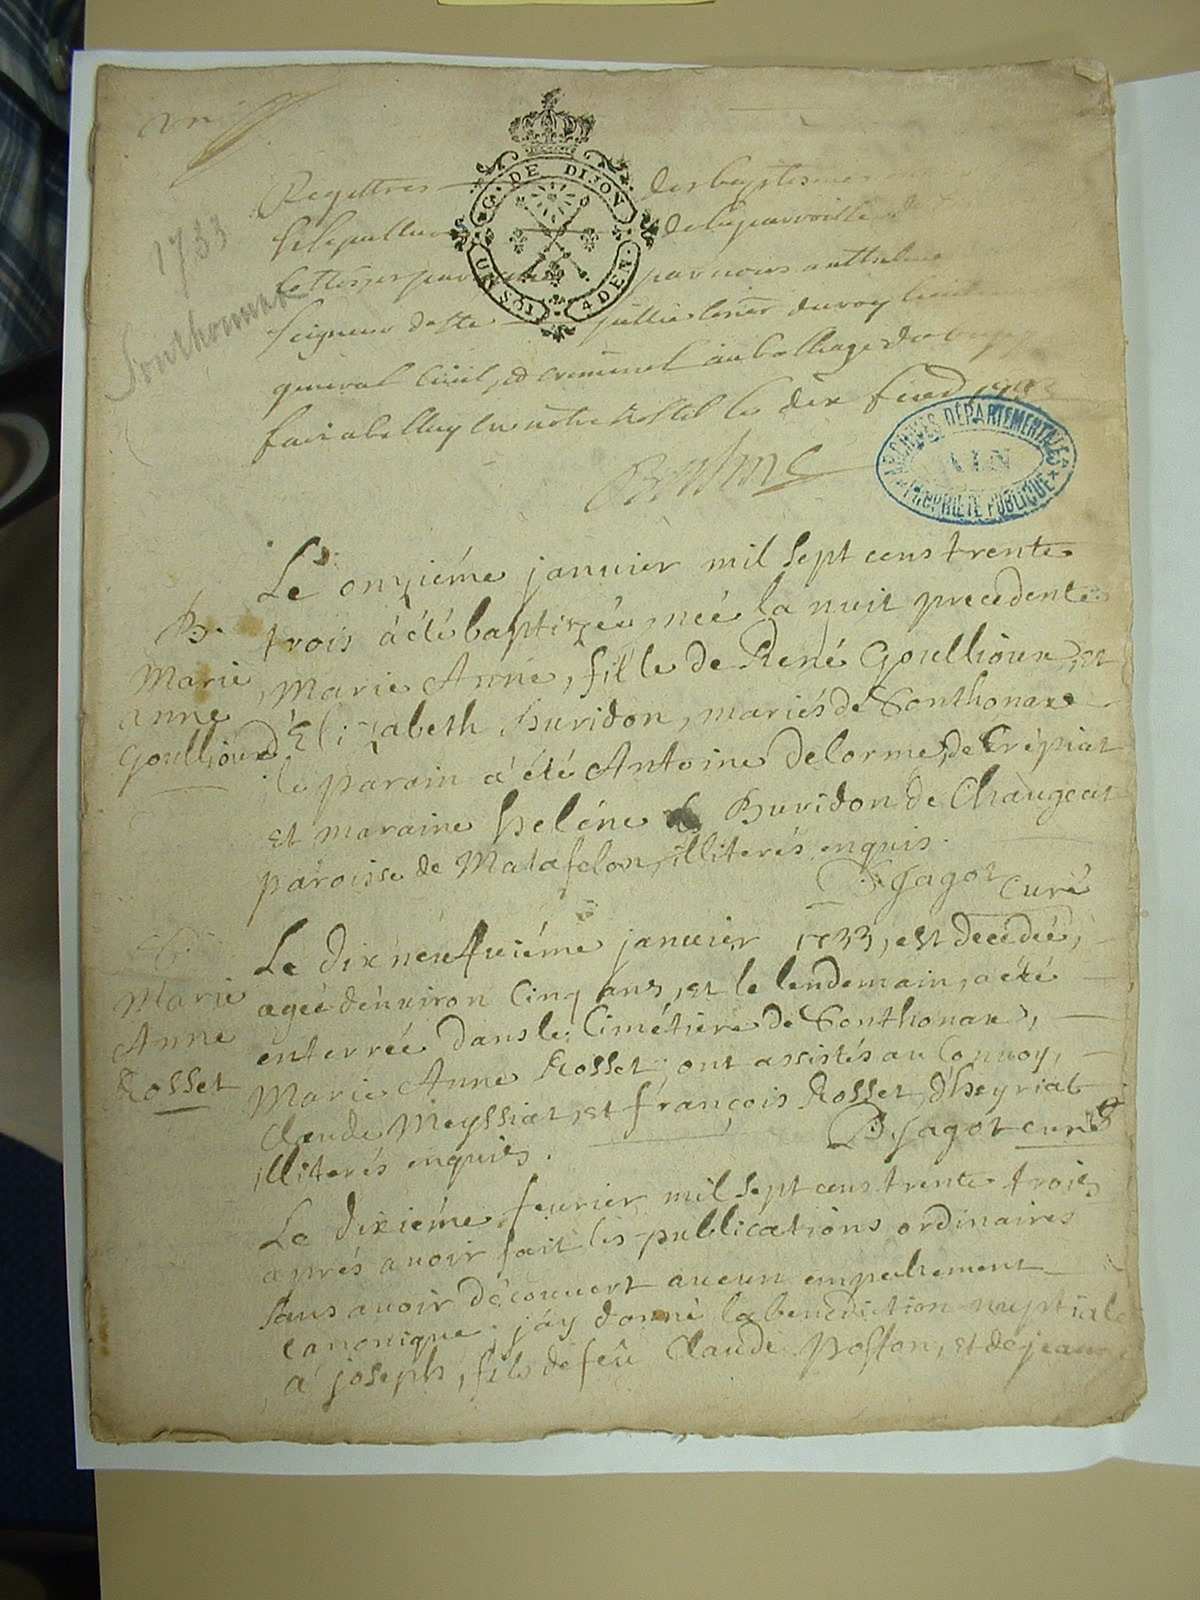 1733
Sonthonnax
G. DE DIJON
UN SOL
4 DEN.
Registres des baptesmes
de la parroisse de
par nous anthelme
Seigneur du roy
general Civil, et criminel au balliage de
fait a belley en notre hostel le dix
ARCHIVES DÉPARTEMENTALES
AIN
PROPRIÉTÉ PUBLIQUE
Le onziéme janvier mil sept cens trente
trois à été baptizée, neé la nuit precedente
Marie Anne, fille de René Goullioux, et
d'Elizabeth Buridon, mariés de Sonthonax
le parain à été Antoine Delorme, de Crépiat
et maraine heléne Buridon de Chaugeat
paroisse de Matafelon, illiterés enquis.
B. Jagot Curé
B.
Marie
anne
Goullioud
Le dix neufuiéme janvier 1733, est decedeé,
ageé d'environ Cinq ans, et le lendemain, a été
enterreé dans le Cimétiere de Sonthonax,
Marie Anne Rosset; ont assistés au Convoy,
Claude Meyssiat, et françois Rosset, d'heyriat
illiterés enquis. B. Jagot curé
Marie
Anne
Rosset
Le dixiéme feurier mil sept cens trente trois
aprés avoir fait les publications ordinaires
sans avoir découvert aucun empechement
canonique; j'ay donné la benediction nuptiale
à joseph, fils de feû Claude Posson, et de jeanne